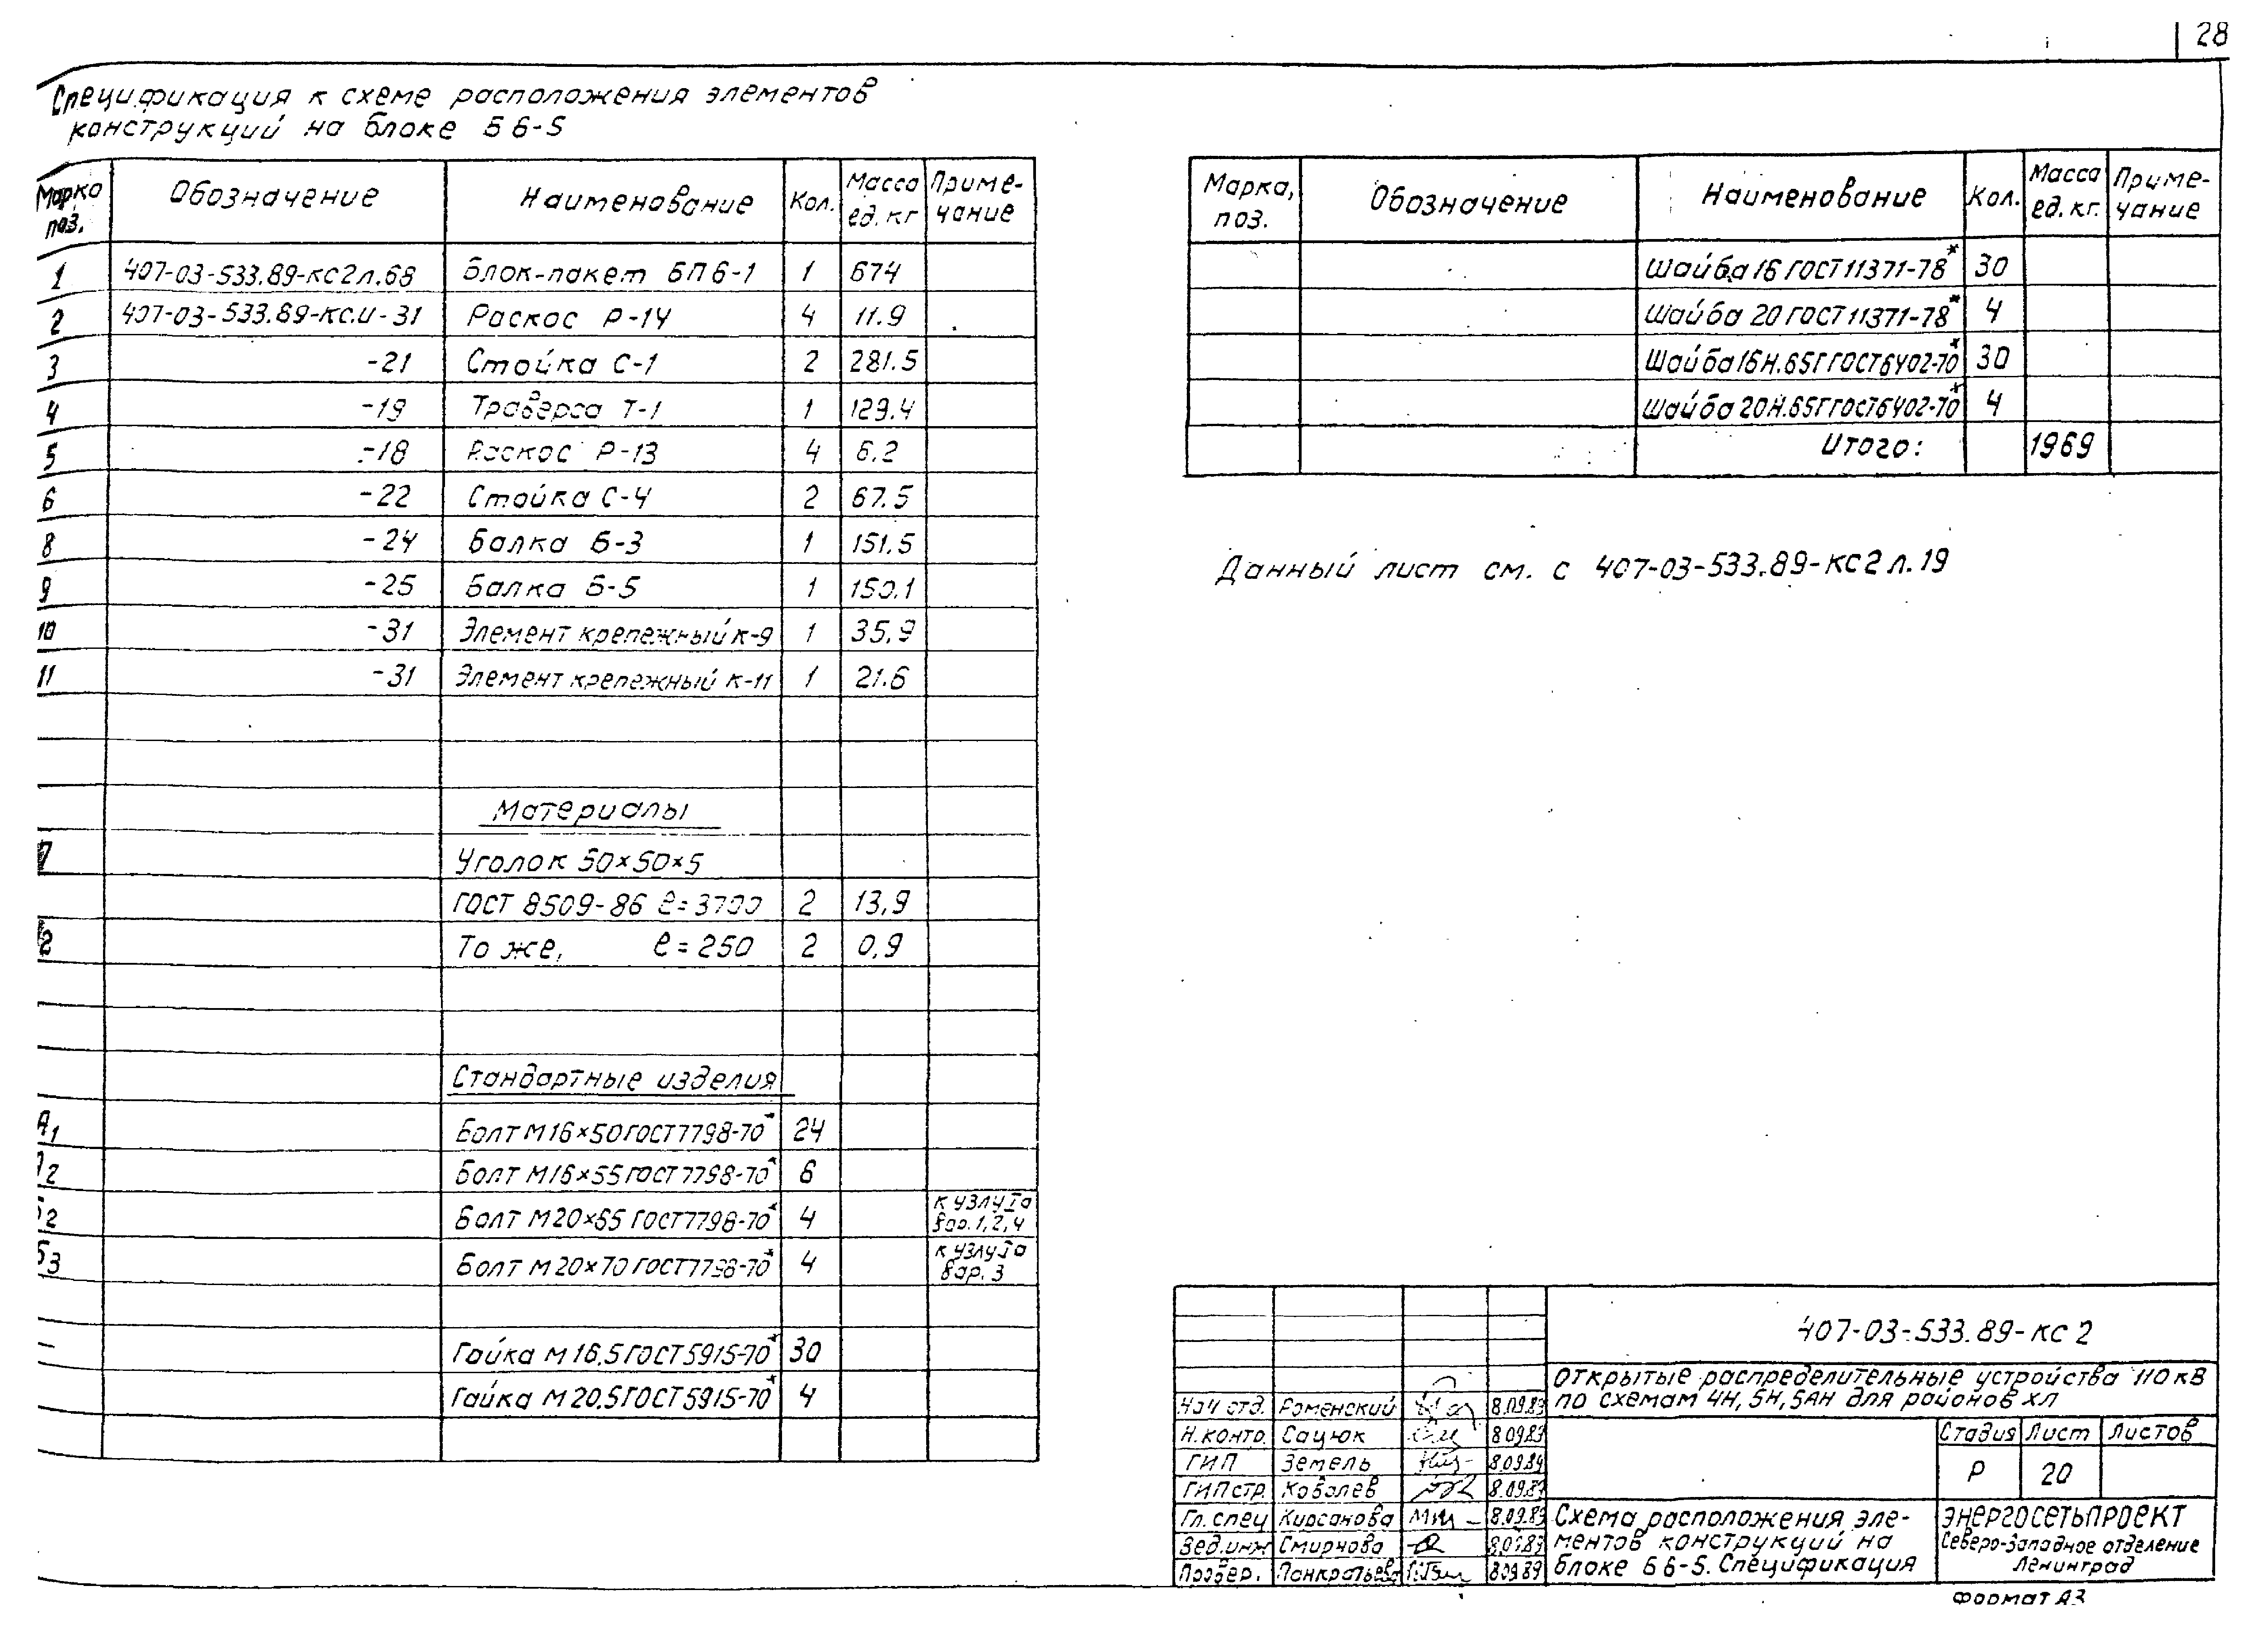 28
Спецификация к схеме расположения элементов
конструкций на блоке Б6-5
Марка поз. Обозначение Наименование Кол. Масса ед. кг Приме-чание
1 407-03-533.89-КС2 л.68 Блок-пакет БП6-1 1 674
2 407-03-533.89-КС.И-31 Раскос Р-14 4 11.9
3 -21 Стойка С-1 2 281.5
4 -19 Траверса Т-1 1 129.4
5 -18 Раскос Р-13 4 6.2
6 -22 Стойка С-4 2 67.5
8 -24 Балка Б-3 1 151.5
9 -25 Балка Б-5 1 150.1
10 -31 Элемент крепежный К-9 1 35,9
11 -31 Элемент крепежный К-11 1 21.6
Материалы
7 Уголок 50×50×5
ГОСТ 8509-86 ℓ=3700 2 13,9
То же, ℓ=250 2 0,9
Стандартные изделия
Болт М16×50 ГОСТ 7798-70* 24
Болт М16×55 ГОСТ 7798-70* 6
Болт М20×65 ГОСТ 7798-70* 4 к узлу Iа вар. 1, 2, 4
Болт М20×70 ГОСТ 7798-70* 4 к узлу Iа вар. 3
Гайка М16.5 ГОСТ 5915-70* 30
Гайка М20.5 ГОСТ 5915-70* 4
Марка, поз. Обозначение Наименование Кол. Масса ед. кг. Приме-чание
Шайба 16 ГОСТ 11371-78* 30
Шайба 20 ГОСТ 11371-78* 4
Шайба 16Н.65Г ГОСТ 6402-70* 30
Шайба 20Н.65Г ГОСТ 6402-70* 4
Итого: 1969
Данный лист см. с 407-03-533.89-КС2 л.19
407-03-533.89-КС 2
Открытые распределительные устройства 110 кВ
по схемам 4Н, 5Н, 5АН для районов ХЛ
Нач отд. Роменский 8.09.89
Н.контр. Сацюк 8.09.89
ГИП Земель 8.09.89
ГИП стр. Ковалев 8.09.89
Гл. спец Кирсанова 8.09.89
Вед.инж Смирнова 8.09.89
Провер. Панкратьева 8.09.89
Стадия Лист Листов
Р 20
Схема расположения эле-
ментов конструкций на
блоке Б6-5. Спецификация
ЭНЕРГОСЕТЬПРОЕКТ
Северо-Западное отделение
Ленинград
Формат А3